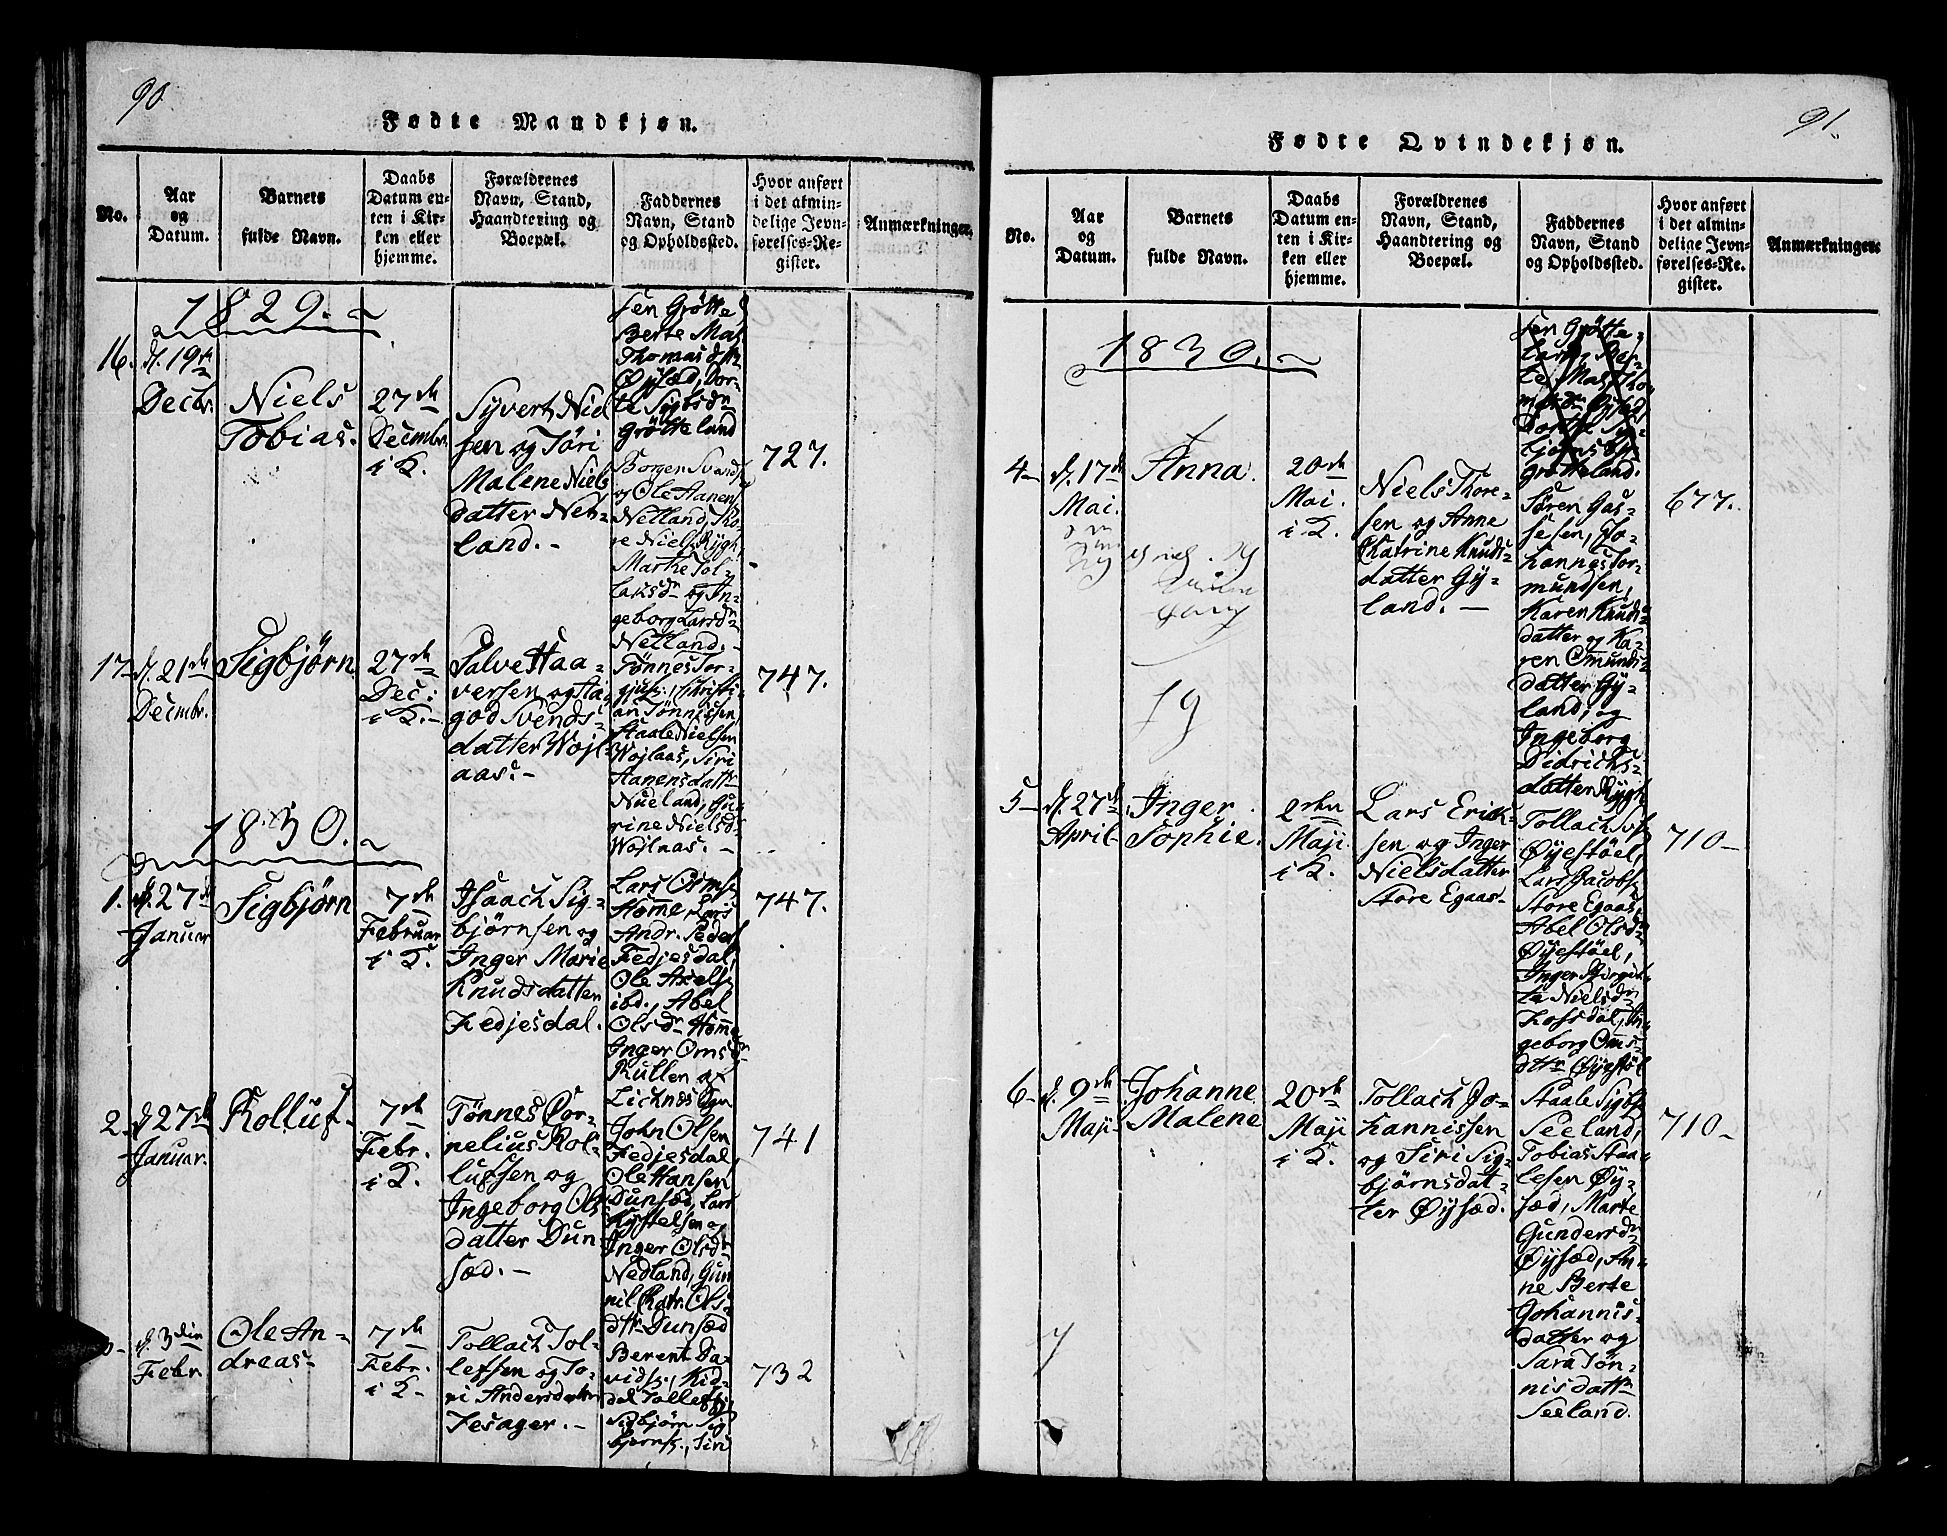 90.
Fødte Mandkjøn.
No.
Aar
og
Datum.
Barnets
fulde Navn.
Daabs
Datum en-
ten i Kir-
ken eller
hjemme.
Forældrenes
Navn, Stand,
Haandtering og
Boepæl.
Faddernes
Navn, Stand
og Opholdssted.
Hvor anført
i det almin-
delige Jevn-
førelses-Re-
gister.
Anmærkninger.
1829.
sen Grötte
Berte Mal
Thomasd
Øysæd, Dor-
te Sigbsdn
Grötteland
16. d. 19de
Decbr.
Niels
Tobias.
27de
Decmbr.
i K.
Syvert Niel
sen og Tori
Malene Niels
datter Net-
land.
Borgen Svends
og Ole Aanens
Netland, To-
re Niels Rygh,
Marthe Tol-
laksdn og In-
geborg Larsdn
Netland.
727.
17 d. 21de
Decmbr.
Sigbjørn
27de
Dec:
i K.
Salve Haa-
versen og Aa-
god Svends-
datter Wojl-
aas.
Tönnes Tor-
gjus., Christi-
an Tönnissen,
Staale Nielsen
Wojlaas, Siri
Aanensdattr
Nueland, Gu-
rine Nielsd.
Wojlaas.
747.
1830.
1. d. 27de
Januar
Sigbjørn
7de
Februar
i K.
Isaach Sig-
bjørnsen og
Inger Marie
Knudsdatter
Fedjesdal.
Lars Osms.
Homme, Lars
Andr. Peders
Fedjesdal,
Ole Axels.
ibd., Abel
Olsdn Homme
Inger Omsdn
Rullen og
747.
2. d. 27de
Januar.
Rolluf
7de
Febr.
i K.
Tönnes Cor-
nelius Rol-
lufssen og
Ingeborg Ols
datter Dun
sæd.
John Olsen
Fedjesdal
Ole Hansen
Dunsæd, Lars
Kystelsen og
Inger Olsdn
Nedland, Gun
nil Chatr. Ols-
dtr Dunsæd
741
d. 3die
Febr
Ole An-
dreas
7de
Febr.
i K
Tollach Tol-
lefssen og To-
ri Andersdatter
Fesager.
Berent Da-
vids., Kid-
del Tollefs
Sigbjørn Sig
bjørns., Siri
732
91.
Fødte Qvindekjøn.
No.
Aar
og
Datum.
Barnets
fulde Navn.
Daabs
Datum en-
ten i Kir-
ken eller
hjemme.
Forældrenes
Navn, Stand,
Haandtering og
Boepæl.
Faddernes
Navn, Stand
og Opholdssted.
Hvor anført
i det almin-
delige Jevn-
førelses-Re-
gister.
Anmærkninger.
1830.
sen Grötte-
land, Ber-
te Mas Tho
Grötteland.
4 d. 17de
Mai.
Anna.
20de
Mai.
i K.
Niels Thore-
sen og Anne
Chatrine Knuds-
datter Gy-
land.
Sören Gas-
sesen, Jo-
hannes Tor-
mundsen,
Karen Knuds-
datter og Ka-
ren Omunds-
datter Gy-
land, og
Ingeborg
Didrichs-
datter Rygh
677.
19
5 d. 27de
April
Inger
Sophie.
2den
Maji
i K.
Lars Erick-
sen og Inger
Nielsdatter
Store Egaas
Tollach
Øyestöel,
Lars Jacobs.
Store Egaas,
Abel Olsdn
Øyestöel,
Inger Birgit-
te Nielsdn
Fossdal, In-
geborg Oms-
dttr Øyestöl
710
6 d. 9de
Maji
Johanne
Malene
20de
Maji
i K.
Tollach Jo-
hannissen
og Siri Sig-
bjørnsdat-
ter Øysæd.
Staale Sigb.
Seeland,
Tobias Staa-
lesen Øy-
sæd, Marte
Gundersdn
Øysæd, An-
ne Berte
Johannis-
datter og
Sara Tön-
nisdattr
Seeland.
710
7